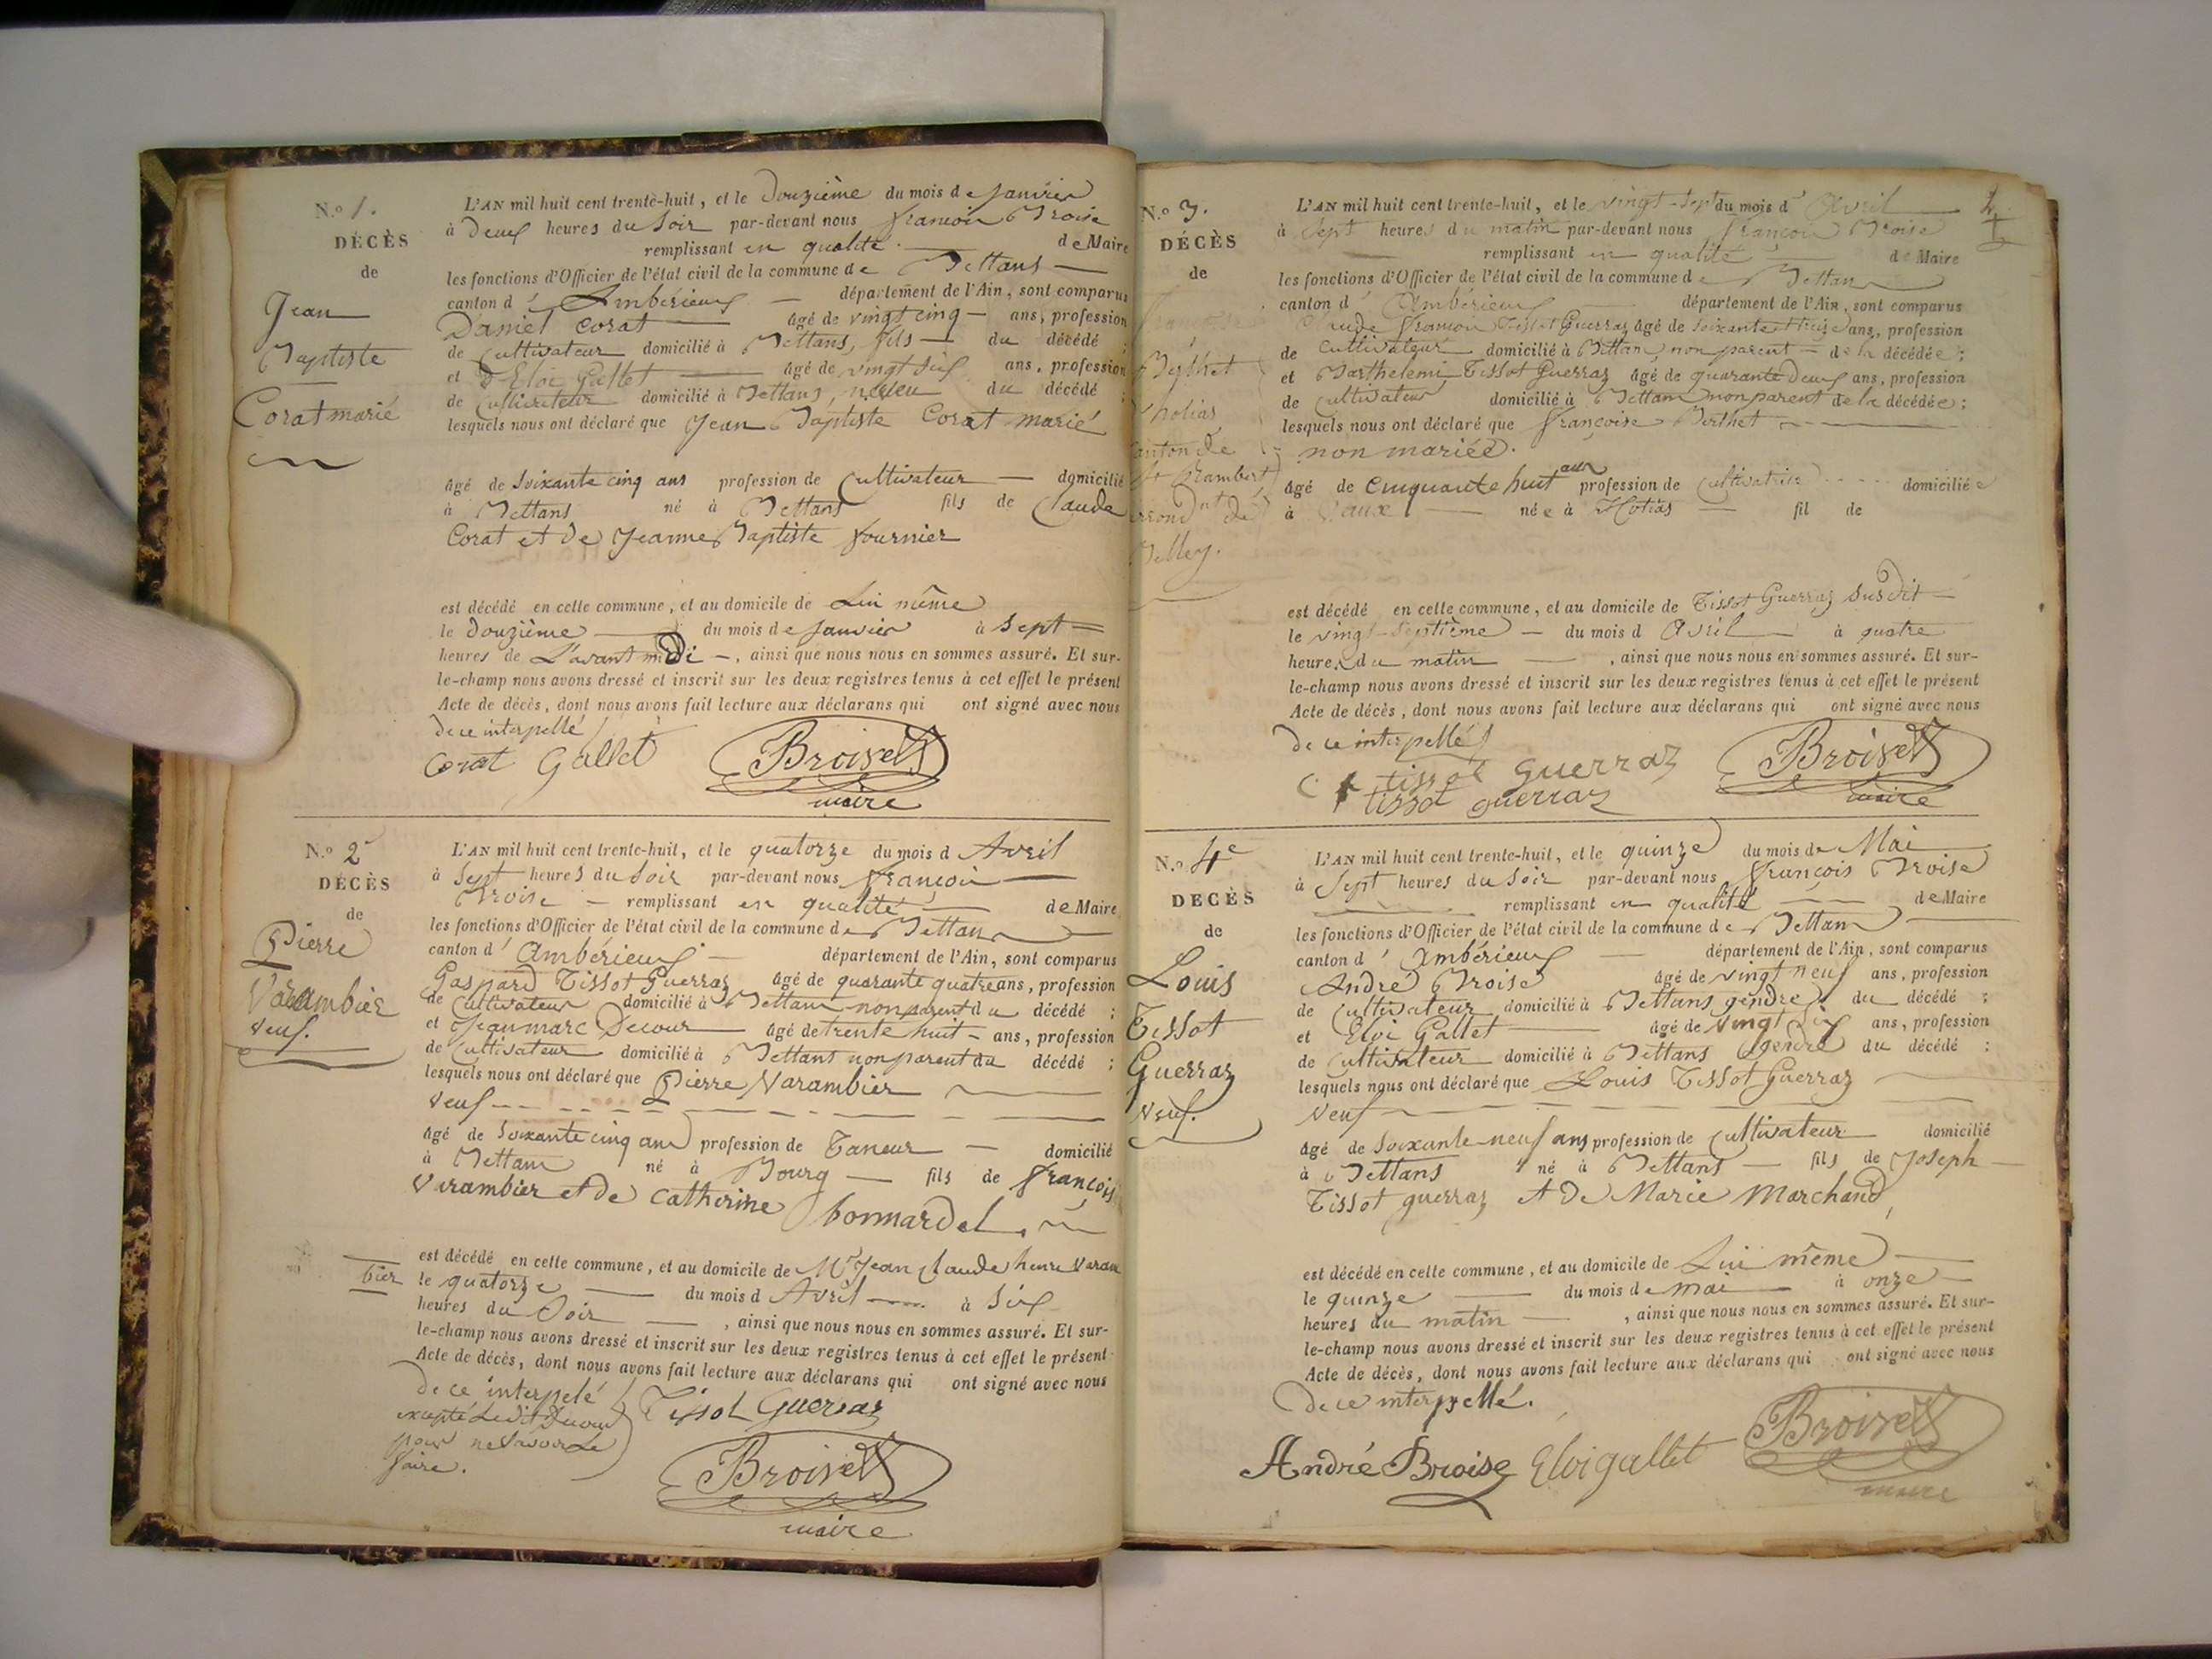 N.º 1.
DÉCÈS
de
Jean
Baptiste
Corat marié
L'AN mil huit cent trente-huit, et le Douzième du mois de Janvier
à Deux heures du Soir par-devant nous françois Broise
remplissant en qualité de Maire
les fonctions d'Officier de l'état civil de la commune de Bettans
canton d'Ambérieux département de l'Ain, sont comparus
Daniel Corat âgé de vingt cinq ans, profession
de Cultivateur domicilié à Bettans, fils du décédé ;
et Eloi Gallet âgé de vingt six ans, profession
de Cultivateur domicilié à Bettans, neveu du décédé ;
lesquels nous ont déclaré que Jean Baptiste Corat marié
âgé de Soixante cinq ans profession de Cultivateur domicilié
à Bettans né à Bettans fils de Claude
Corat et de Jeanne Baptiste fournier
est décédé en cette commune, et au domicile de Lui même
le Douzième du mois de Janvier à Sept
heures de L'avant midi, ainsi que nous nous en sommes assuré. Et sur-
le-champ nous avons dressé et inscrit sur les deux registres tenus à cet effet le présent
Acte de décès, dont nous avons fait lecture aux déclarans qui ont signé avec nous
de ce interpellé
Corat Gallet Broise
maire
N.º 2
DÉCÈS
de
Pierre
Varambier
veuf.
L'AN mil huit cent trente-huit, et le quatorze du mois d Avril
à Sept heures du Soir par-devant nous françois
Broise remplissant en qualité de Maire
les fonctions d'Officier de l'état civil de la commune de Bettans
canton d'Ambérieux département de l'Ain, sont comparus
Gaspard Tissot Guerraz âgé de quarante quatre ans, profession
de Cultivateur domicilié à Bettans non parent du décédé ;
et Jean marc Decour âgé de trente huit ans, profession
de Cultivateur domicilié à Bettans non parent du décédé ;
lesquels nous ont déclaré que Pierre Varambier
veuf
âgé de Soixante cinq ans profession de Taneur domicilié
à Bettans né à Bourg fils de françois
Varambier et de Catherine bonnardel.
est décédé en cette commune, et au domicile de Mr Jean Claude henri Varam
bier le quatorze du mois d Avril à Six
heures du Soir, ainsi que nous nous en sommes assuré. Et sur-
le-champ nous avons dressé et inscrit sur les deux registres tenus à cet effet le présent
Acte de décès, dont nous avons fait lecture aux déclarans qui ont signé avec nous
de ce interpelé
excepté Ledit Decour
pour ne Savoir Le
faire.
Tissot Guerraz
Broise
maire
N.º 3.
DÉCÈS
de
Berthet
d'hotias
canton de
St Rambert
arrondnt de
Belley.
L'AN mil huit cent trente-huit, et le vingt-Sept du mois d'Avril
à Sept heures du matin par-devant nous françois Broise
remplissant en qualité de Maire
les fonctions d'Officier de l'état civil de la commune de Bettans
canton d'Ambérieux département de l'Ain, sont comparus
Claude françois Tissot Guerraz âgé de Soixante treize ans, profession
de Cultivateur domicilié à Bettans non parent de la décédée ;
et Barthelemi Tissot Guerraz âgé de quarante Deux ans, profession
de Cultivateur domicilié à Bettans non parent de la décédée ;
lesquels nous ont déclaré que françoise Berthet
non mariée.
âgé de Cinquante huit ans profession de Cultivatrice domiciliée
à Vaux née à Hotias fil de
est décédé en cette commune, et au domicile de Tissot Guerraz Susdit
le vingt-Septième du mois d Avril à quatre
heures du matin, ainsi que nous nous en sommes assuré. Et sur-
le-champ nous avons dressé et inscrit sur les deux registres tenus à cet effet le présent
Acte de décès, dont nous avons fait lecture aux déclarans qui ont signé avec nous
de ce interpellés
C f tissot Guerraz
tissot guerraz
Broise
maire
N.º 4e
DÉCÈS
de
Louis
Tissot
Guerraz
veuf.
L'AN mil huit cent trente-huit, et le quinze du mois de Mai
à Sept heures du Soir par-devant nous françois Broise
remplissant en qualité de Maire
les fonctions d'Officier de l'état civil de la commune de Bettans
canton d'Ambérieux département de l'Ain, sont comparus
André Broise âgé de vingt neuf ans, profession
de Cultivateur domicilié à Bettans gendre du décédé ;
et Eloi Gallet âgé de vingt Six ans, profession
de Cultivateur domicilié à Bettans gendre du décédé ;
lesquels nous ont déclaré que Louis Tissot Guerraz
veuf
âgé de Soixante-neuf ans profession de Cultivateur domicilié
à Bettans né à Bettans fils de Joseph
Tissot guerraz et de Marie Marchand,
est décédé en cette commune, et au domicile de Lui même
le quinze du mois de mai à onze
heures du matin, ainsi que nous nous en sommes assuré. Et sur-
le-champ nous avons dressé et inscrit sur les deux registres tenus à cet effet le présent
Acte de décès, dont nous avons fait lecture aux déclarans qui ont signé avec nous
de ce interpellé.
André Broise Eloi gallet Broise
maire